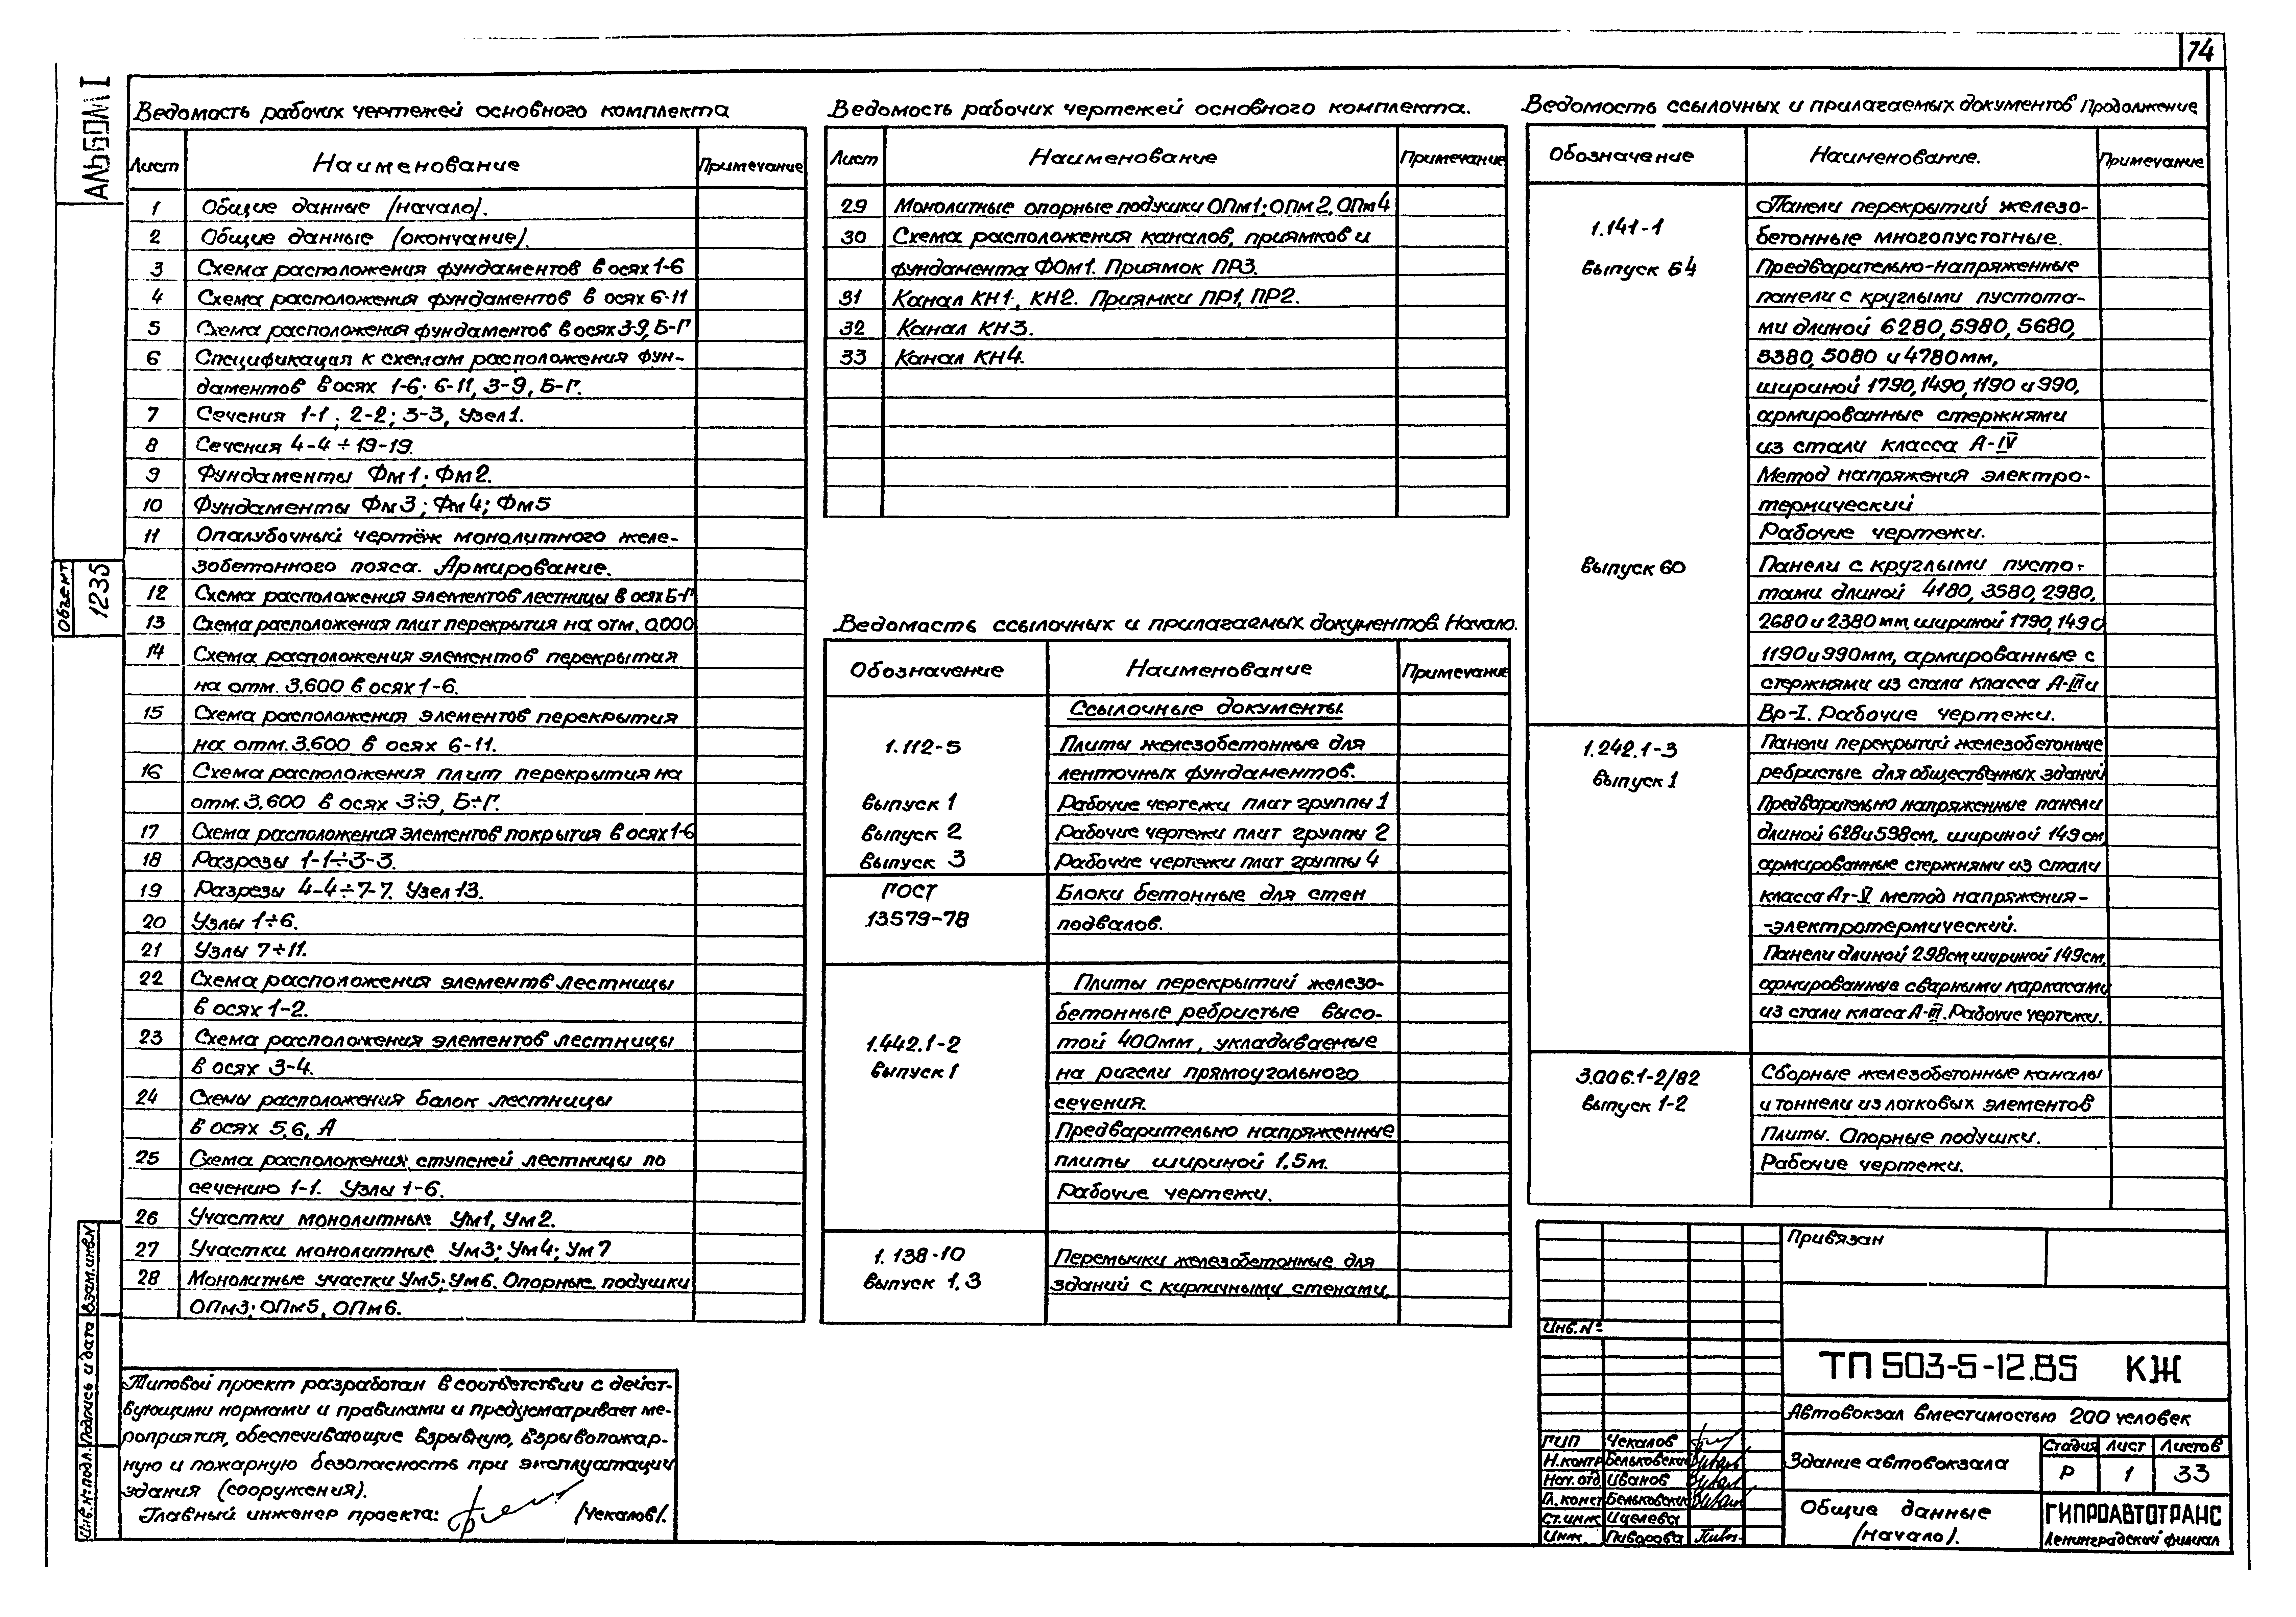 74
АЛЬБОМ I
Объект
1235
Ведомость рабочих чертежей основного комплекта
Лист Наименование Примечание
1 Общие данные /начало/.
2 Общие данные /окончание/.
3 Схема расположения фундаментов в осях 1-6
4 Схема расположения фундаментов в осях 6-11
5 Схема расположения фундаментов в осях 3-9, Б-Г
6 Спецификация к схемам расположения фун-
даментов в осях 1-6; 6-11, 3-9, Б-Г.
7 Сечения 1-1; 2-2; 3-3, Узел 1.
8 Сечения 4-4÷19-19.
9 Фундаменты Фм1; Фм2.
10 Фундаменты Фм3; Фм4; Фм5
11 Опалубочный чертёж монолитного желе-
зобетонного пояса. Армирование.
12 Схема расположения элементов лестницы в осях Б-Г
13 Схема расположения плит перекрытия на отм. 0.000
14 Схема расположения элементов перекрытия
на отм. 3.600 в осях 1-6.
15 Схема расположения элементов перекрытия
на отм. 3.600 в осях 6-11.
16 Схема расположения плит перекрытия на
отм. 3.600 в осях 3÷9, Б÷Г.
17 Схема расположения элементов покрытия в осях 1-6
18 Разрезы 1-1÷3-3.
19 Разрезы 4-4÷7-7. Узел 13.
20 Узлы 1÷6.
21 Узлы 7÷11.
22 Схема расположения элементов лестницы
в осях 1-2.
23 Схема расположения элементов лестницы
в осях 3-4.
24 Схемы расположения балок лестницы
в осях 5,6, А
25 Схема расположения ступеней лестницы по
сечению 1-1. Узлы 1-6.
26 Участки монолитные Ум1, Ум2.
27 Участки монолитные Ум3; Ум4; Ум7
28 Монолитные участки Ум5; Ум6. Опорные подушки
ОПм3; ОПм5, ОПм6.
Ведомость рабочих чертежей основного комплекта.
Лист Наименование Примечание
29 Монолитные опорные подушки ОПм1; ОПм2, ОПм4
30 Схема расположения каналов, приямков и
фундамента ФОм1. Приямок ПР3.
31 Канал КН1, КН2. Приямки ПР1, ПР2.
32 Канал КН3.
33 Канал КН4.
Ведомость ссылочных и прилагаемых документов. Начало.
Обозначение Наименование Примечание
Ссылочные документы.
1.112-5 Плиты железобетонные для
ленточных фундаментов.
Выпуск 1 Рабочие чертежи плит группы 1
Выпуск 2 Рабочие чертежи плит группы 2
Выпуск 3 Рабочие чертежи плит группы 4
ГОСТ Блоки бетонные для стен
13579-78 подвалов.
Плиты перекрытий железо-
бетонные ребристые высо-
1.442.1-2 той 400мм, укладываемые
Выпуск 1 на ригели прямоугольного
сечения.
Предварительно напряженные
плиты шириной 1,5м.
Рабочие чертежи.
1.138-10 Перемычки железобетонные для
Выпуск 1,3 зданий с кирпичными стенами.
Ведомость ссылочных и прилагаемых документов Продолжение
Обозначение Наименование. Примечание
Панели перекрытий железо-
1.141-1 бетонные многопустотные.
Выпуск 64 Предварительно-напряженные
панели с круглыми пустота-
ми длиной 6280, 5980, 5680,
5380, 5080 и 4780мм,
шириной 1790, 1490, 1190 и 990,
армированные стержнями
из стали класса А-IV
Метод напряжения электро-
термический
Рабочие чертежи.
Выпуск 60 Панели с круглыми пусто-
тами длиной 4180, 3580, 2980,
2680 и 2380 мм, шириной 1790, 1490
1190 и 990мм, армированные с
стержнями из стали класса А-III и
Вр-I. Рабочие чертежи.
1.242.1-3 Панели перекрытий железобетонные
Выпуск 1 ребристые для общественных зданий
Предварительно напряженные панели
длиной 628 и 598см, шириной 149см,
армированные стержнями из стали
класса Ат-V метод напряжения-
-электротермический.
Панели длиной 298см, шириной 149см,
армированные сварными каркасами
из стали класа А-III. Рабочие чертежи.
3.006.1-2/82 Сборные железобетонные каналы
Выпуск 1-2 и тоннели из лотковых элементов
Плиты. Опорные подушки.
Рабочие чертежи.
Инв.№подл. Подпись и дата Взам.инв.N
Типовой проект разработан в соответствии с дейст-
вующими нормами и правилами и предусматривает ме-
роприятия, обеспечивающие взрывную, взрывопожар-
ную и пожарную безопасность при эксплуатации
здания (сооружения).
Главный инженер проекта: /Чекалов/.
Привязан
Инв.№
ТП 503-5-12.85 КЖ
Автовокзал вместимостью 200 человек
ГИП Чекалов
Н.контр Бельковский
Нач.отд Иванов
Гл.конст Бельковский
Ст.инж
Инж. Пиворова
Здание автовокзала
Стадия Лист Листов
Р 1 33
Общие данные
/начало/.
ГИПРОАВТОТРАНС
Ленинградский филиал